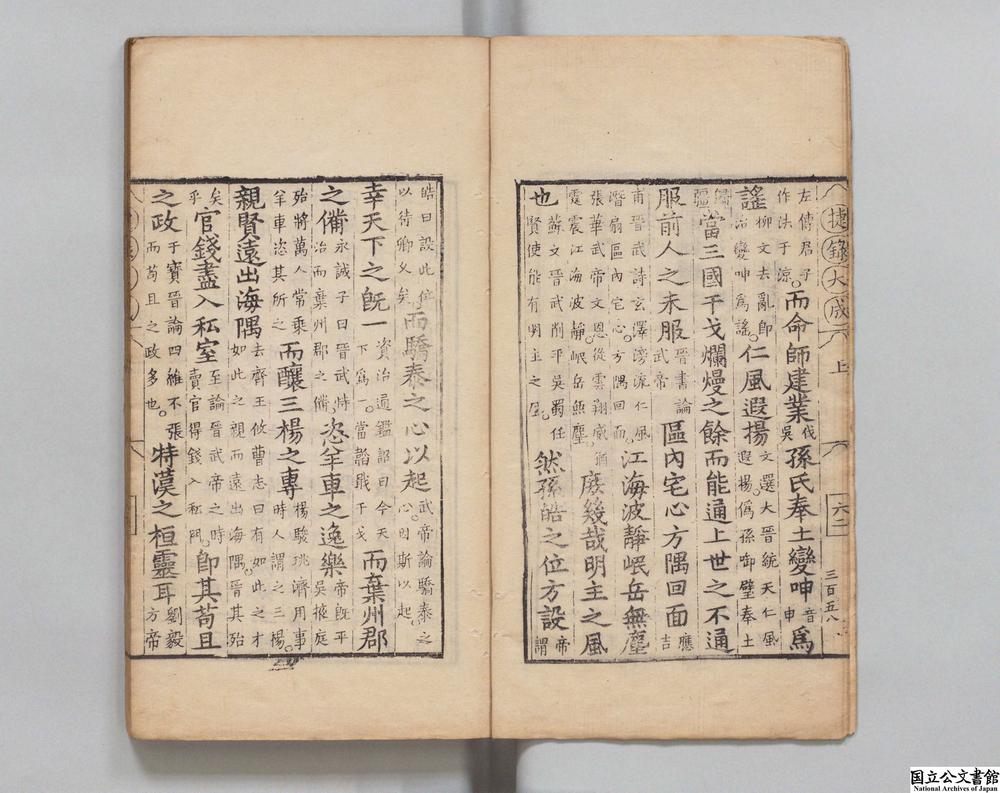 捷錄大成 上 六二 三百五八
左傳君子作法于涼。而命師建業伐吳孫氏奉土變呻音申爲
謠柳文去亂卽治變呻爲謠。仁風遐揚文選大晉統天仁風遐揚。僞孫啣璧奉土
歸疆當三國干戈爛熳之餘而能通上世之不通
服前人之未服晉書武帝論區內宅心方隅回面應吉
甫晉武詩玄澤滂流仁風潛扇區內宅心。方隅回面。江海波靜岷岳無塵
張華武帝文恩從雲翔威霆震江海波靜。岷岳無塵。庶幾哉明主之風
也蘇文晉武削平吳蜀任賢使能有明主之風。然孫皓之位方設帝謂
皓曰設此位以待卿久矣而驕泰之心以起武帝論驕泰。之心因斯以起。
幸天下之旣一資治通鑑詔曰今天下爲一。當韜戢干戈而棄州郡
之備永誠子曰晉武恃治而棄州郡之備。恣羊車之逸樂帝旣平吳掖庭
殆將萬人常乘羊車恣其所之而釀三楊之專楊駿珧濟用事時人謂之三楊。
親賢遠出海隅去齊王攸曹志曰有如此之才如此之親而遠出海隅。晉其殆
矣乎官錢盡入私室至論晉武帝之時賣官得錢入私門。卽其苟且
之政于寶晉論四維不張而苟且之政多也。特漢之桓靈耳劉毅方帝
国立公文書館
National Archives of Japan